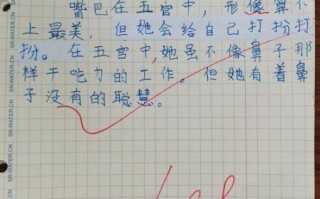 嘴巴在五宫中，形像算不
上最美，但她会给自己打扮打
扮。在五宫中，她虽不像鼻子那
样干吃力的工作。但她有着鼻
子没有的聪慧。